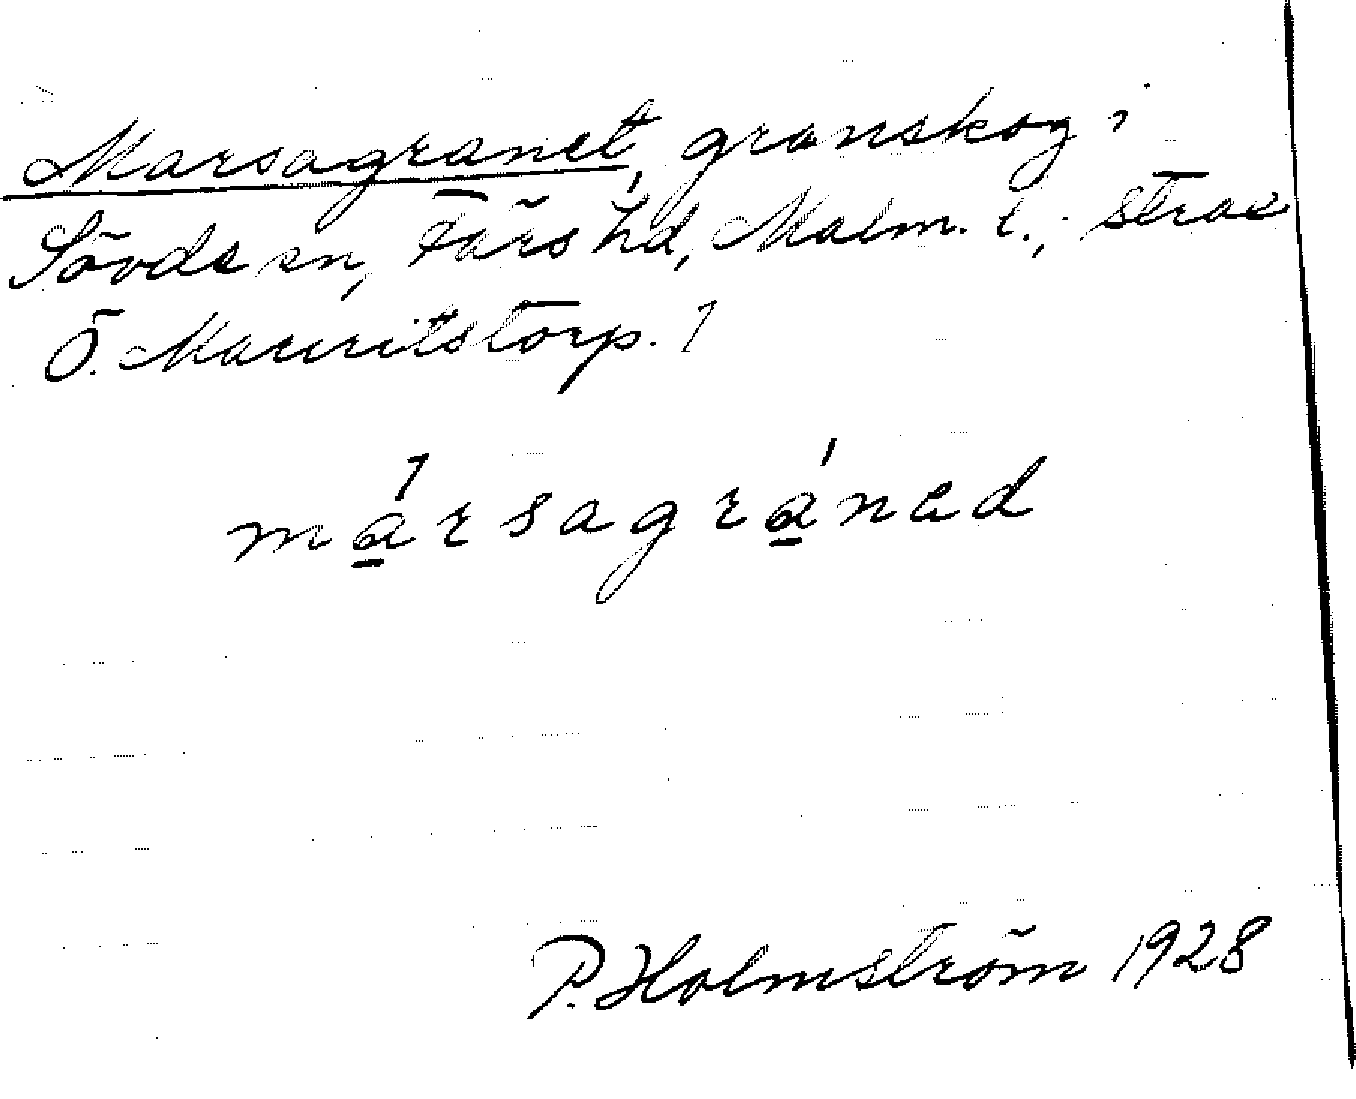 Marsagranet, granskog i
Sövde sn, Färs hd, Malm. l.; strax
Ö. Mauritstorp.
marsagranad
P. Holmström 1928